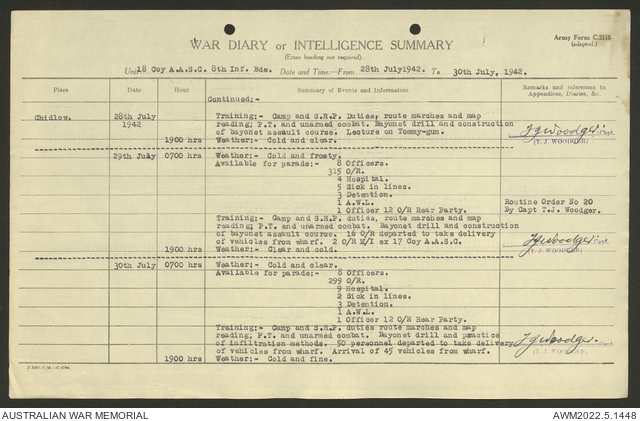 Army Form C.2118
(adapted.)
WAR DIARY or INTELLIGENCE SUMMARY
(Erase heading not required).
Unit 18 Coy A.A.S.C. 8th Inf. Bde. Date and Time—From 28th July 1942. To 30th July, 1942.
Place Date Hour Summary of Events and Information Remarks and references to Appendices, Diaries, &c.
Continued:-
Chidlow. 28th July 1942 Training:- Camp and S.R.P. Duties, route marches and map
reading; P.T. and unarmed combat. Bayonet drill and construction
of bayonet assault course. Lecture on Tommy-gun.
1900 hrs Weather:- Cold and clear.
T J Woodger Capt.
(T.J. WOODGER)
29th July 0700 hrs Weather:- Cold and frosty.
Available for parade:- 8 Officers.
315 O/R.
4 Hospital.
5 Sick in lines.
3 Detention.
1 A.W.L.
1 Officer 12 O/R Rear Party.
Routine Order No 20
By Capt T.J. Woodger.
Training:- Camp and S.R.P. duties, route marches and map
reading; P.T. and unarmed combat. Bayonet drill and construction
of bayonet assault course. 16 O/R departed to take delivery
of vehicles from wharf. 2 O/R M/I ex 17 Coy A.A.S.C.
1900 hrs Clear and cold.
T J Woodger Capt.
(T.J. WOODGER)
30th July 0700 hrs Weather:- Cold and clear.
Available for parade:- 8 Officers.
299 O/R
9 Hospital.
2 Sick in lines.
3 Detention.
1 A.W.L.
1 Officer 12 O/R Rear Party.
Training:- Camp and S.R.P. duties route marches and map
reading; P.T. and unarmed combat. Bayonet drill and practice
of infiltration methods. 50 personnel departed to take delivery
of vehicles from wharf. Arrival of 45 vehicles from wharf.
1900 hrs Weather:- Cold and fine.
T J Woodger Capt.
(T.J. WOODGER)
AUSTRALIAN WAR MEMORIAL
AWM2022.5.1448